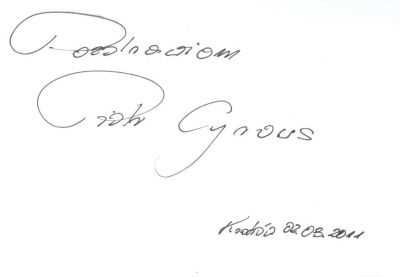 Pozdrawiam
Piotr Cyrwus
Kraków 02.09.2011